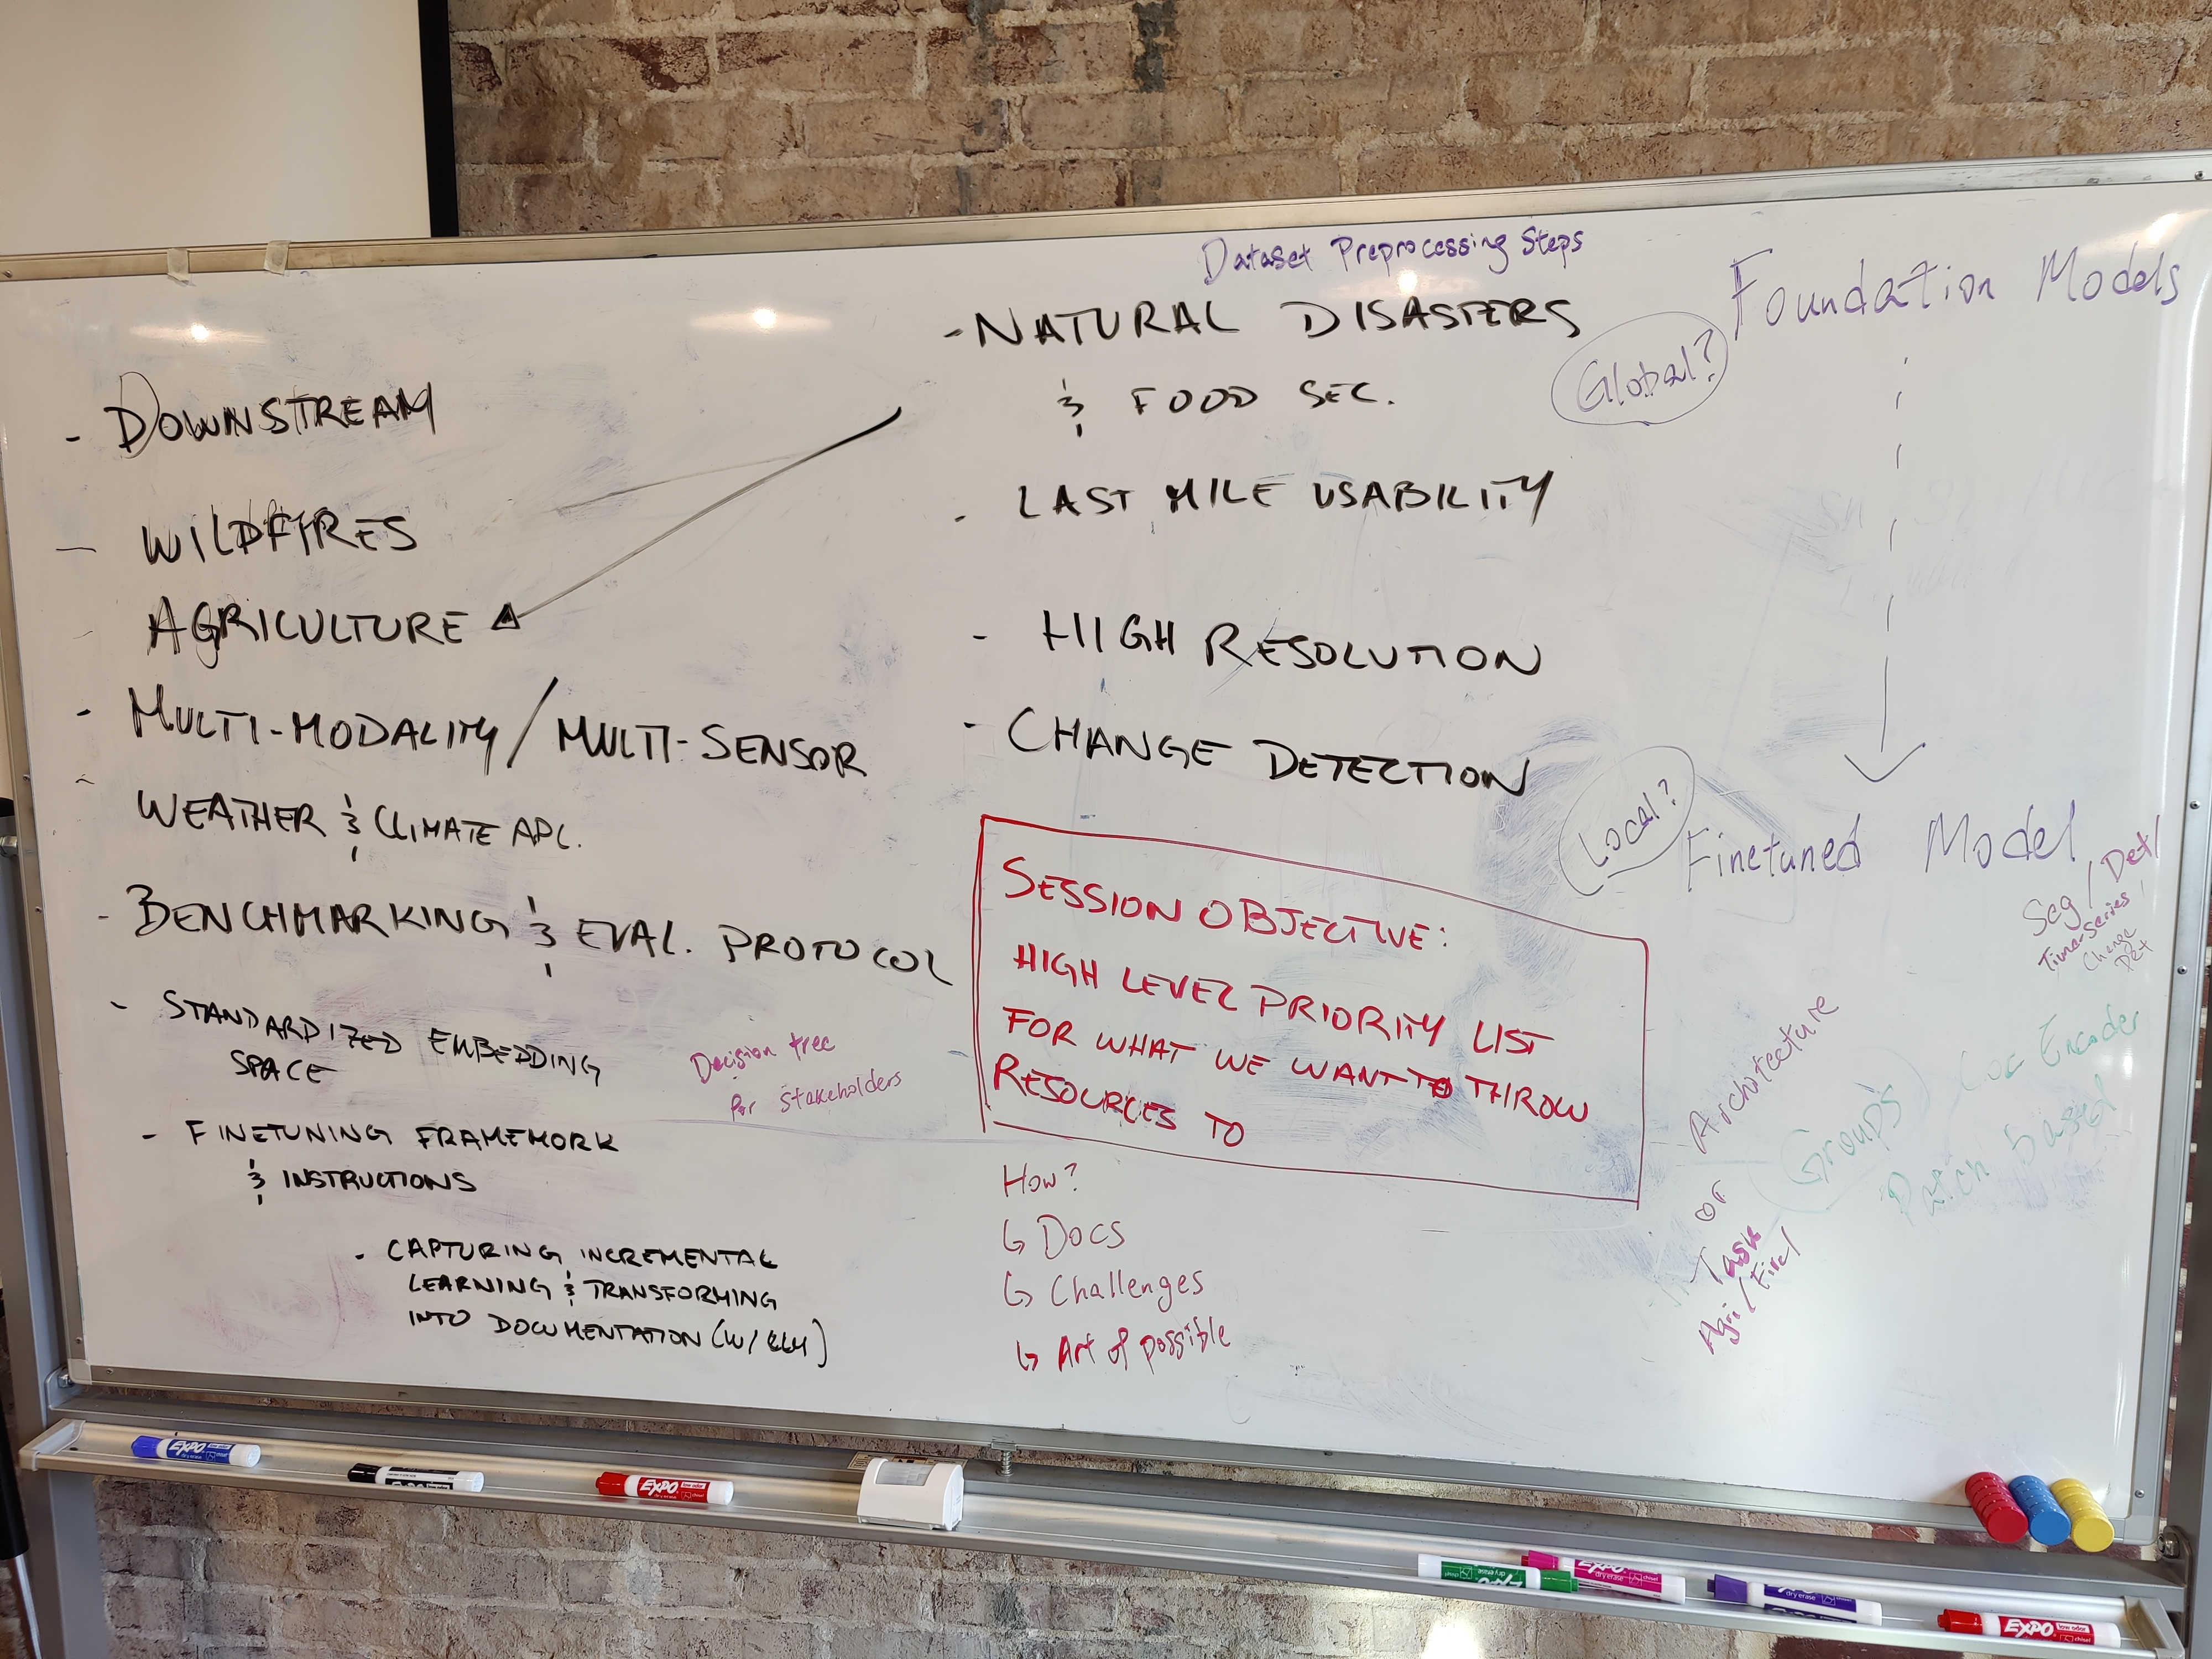 Dataset Preprocessing Steps
- DOWNSTREAM
- WILDFIRES
- AGRICULTURE
- MULTI-MODALITY / MULTI-SENSOR
- WEATHER & CLIMATE APL.
- BENCHMARKING & EVAL. PROTOCOL
- STANDARDIZED EMBEDDING
SPACE
Decision tree
for stakeholders
- FINETUNING FRAMEWORK
& INSTRUCTIONS
- CAPTURING INCREMENTAL
LEARNING & TRANSFORMING
INTO DOCUMENTATION (W/ LLM)
- NATURAL DISASTERS
& FOOD SEC.
- LAST MILE USABILITY
- HIGH RESOLUTION
- CHANGE DETECTION
SESSION OBJECTIVE:
HIGH LEVEL PRIORITY LIST
FOR WHAT WE WANT TO THROW
RESOURCES TO
How?
↳ Docs
↳ Challenges
↳ Art of possible
Foundation Models
Global?
Local?
Finetuned Model
Seg / Det /
Time-series /
Change
Det
Architecture
or
Task
Agri / Fire /
Groups
Loc Encoder
Patch based
EXPO
EXPO
EXPO
EXPO